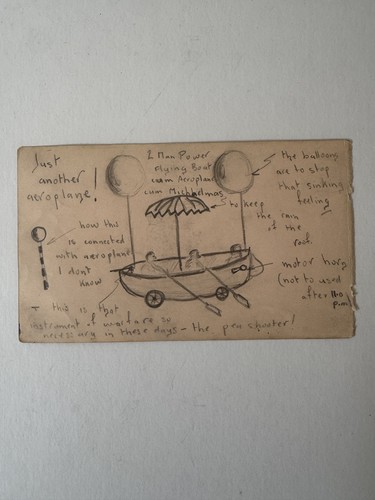 Just
another
aeroplane!
2 Man Power
Flying Boat
cum Aeroplane
cum Michaelmas
the balloons
are to stop
that sinking
feeling
to keep
the rain
of the
roof.
how this
is connected
with aeroplane
I dont
know
motor horn
(not to used
after 11.0
p.m)
this is that
instrument of warfare so
necessary in these days - the pea shooter!